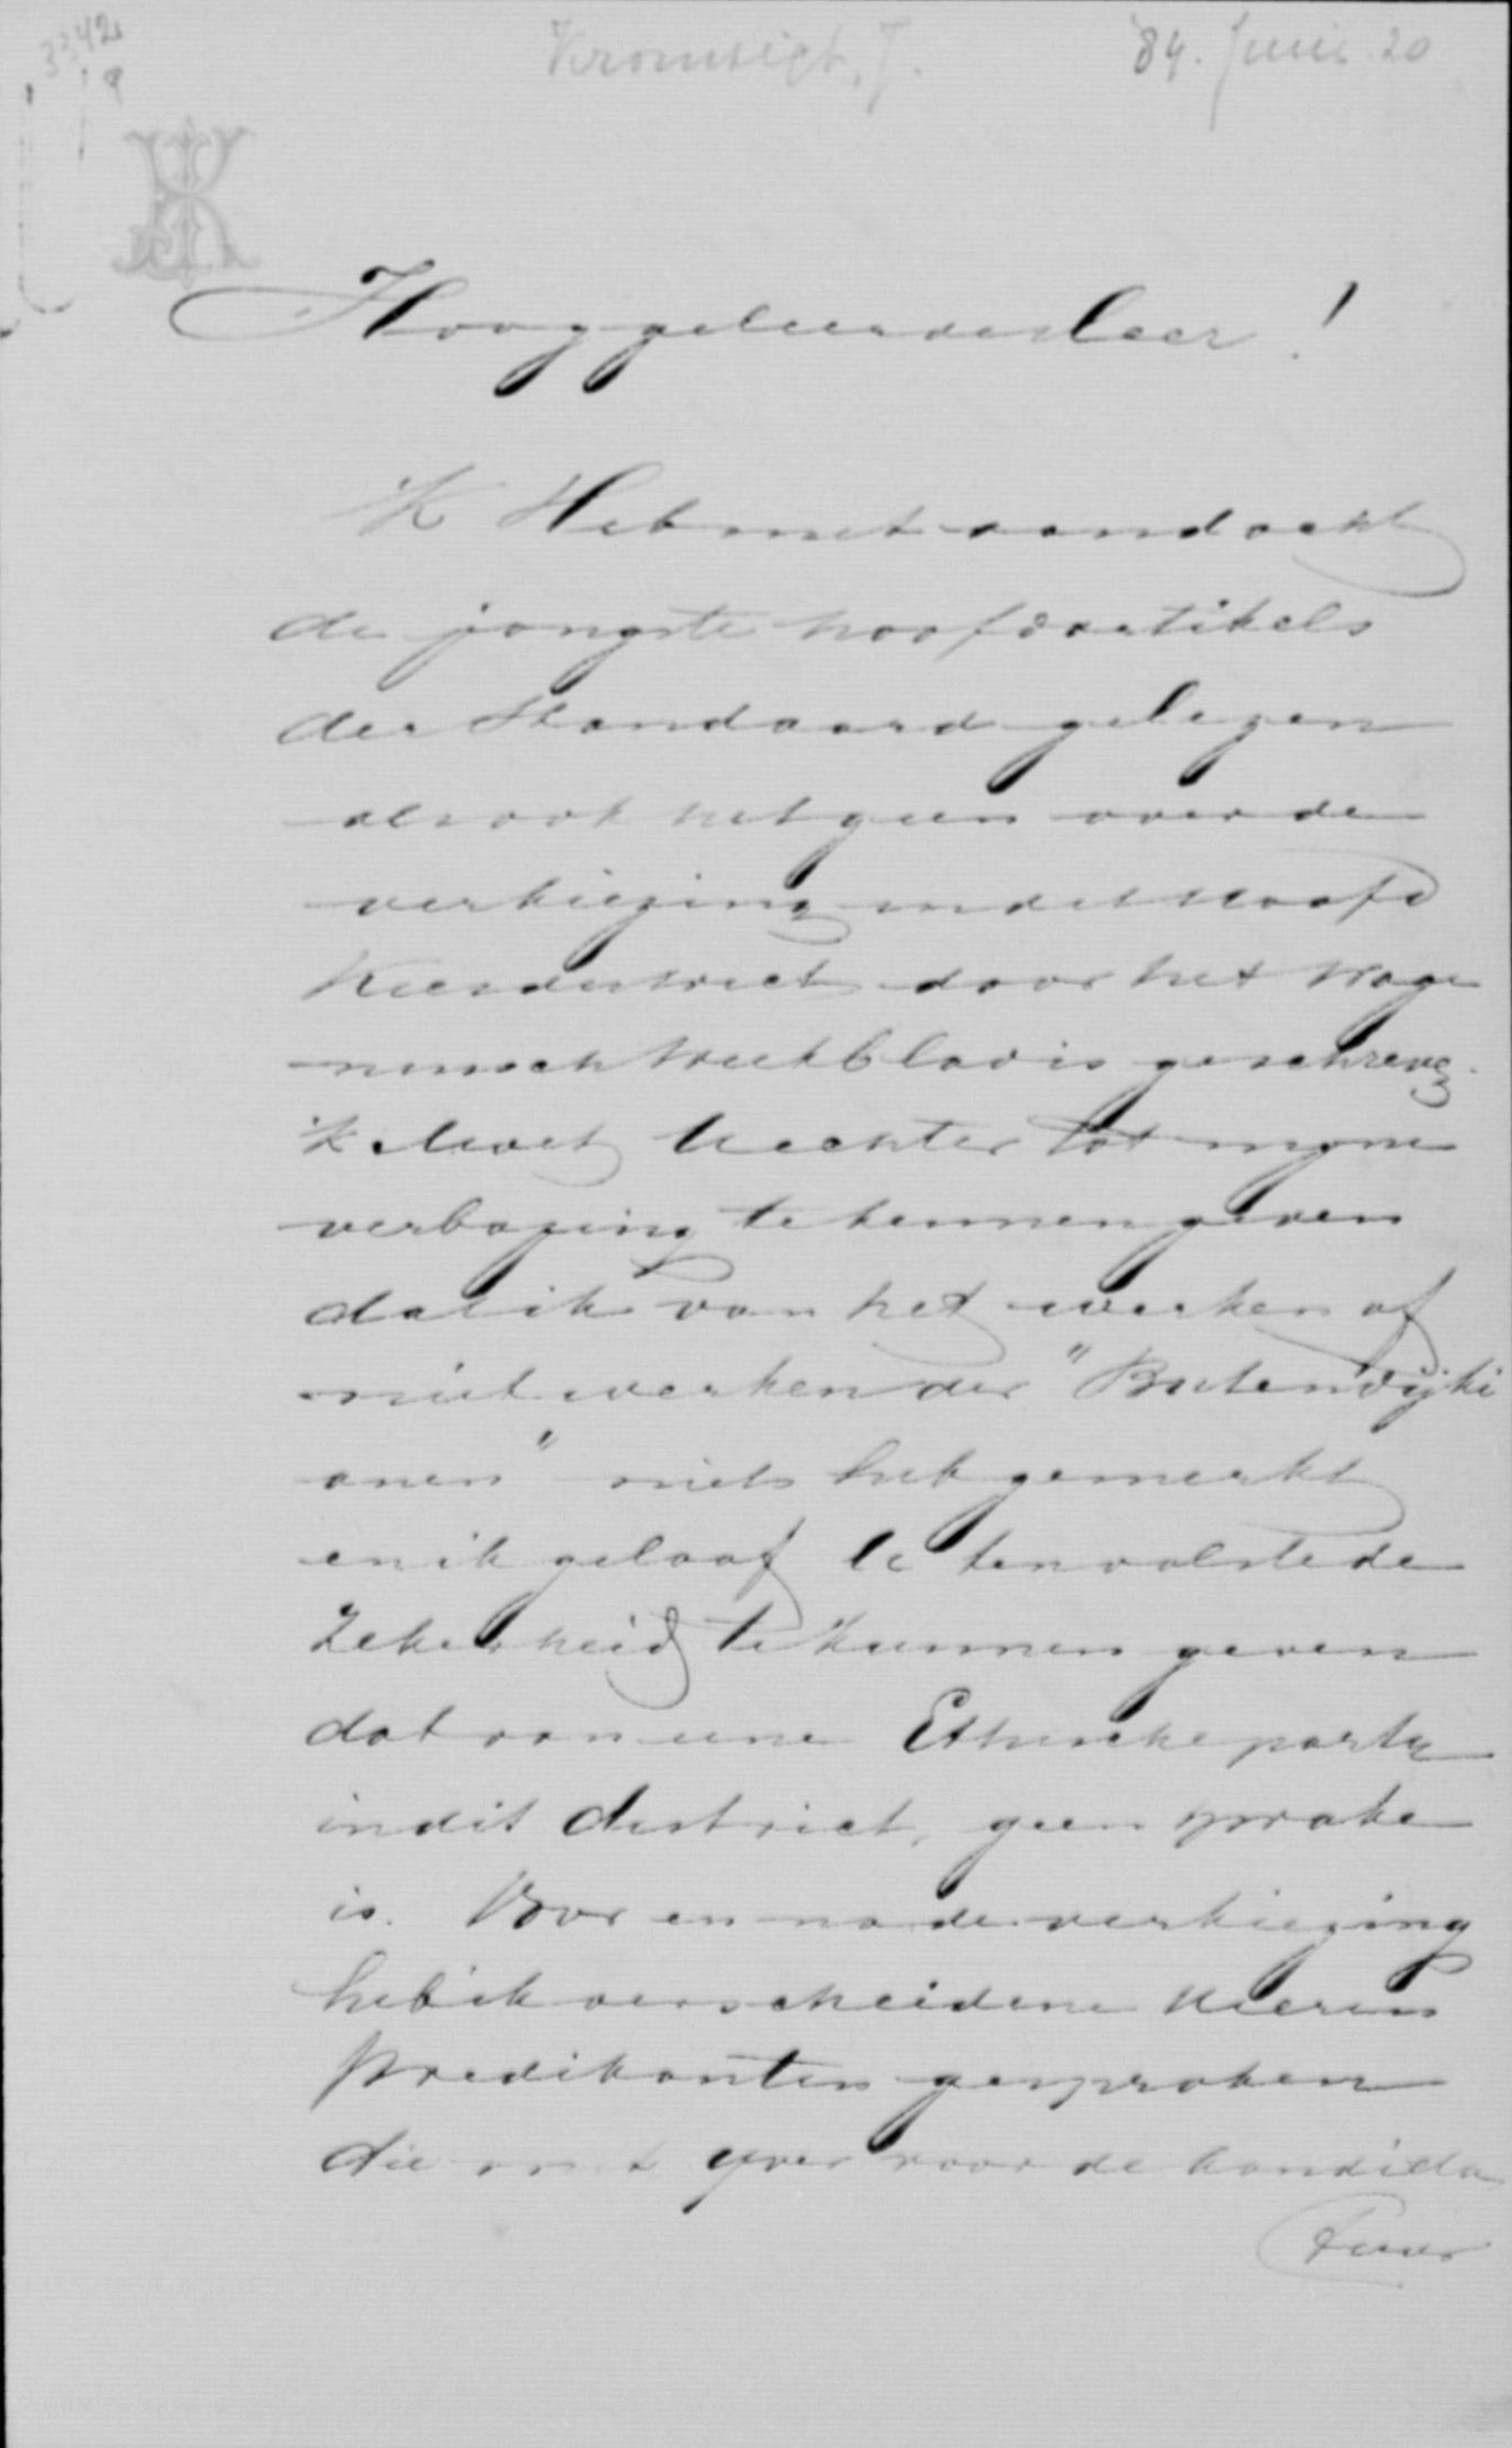 3342
Kromsigt, J. '84. Junie 20
Hooggeleerde Heer!
'K Heb met aandacht
de jongste hoofdartikels
der Standaard gelezen
als ook hetgeen over de
verkiezing in dit Hoofd
Kiesdistrict door het Wage
ningsch Weekblad is geschreven.
'k Moet U echter tot mijne
verbazing te kennen geven
dat ik van het werken of
niet werken der "Buitendijki
anen" niets heb gemerkt
en ik geloof U ten volste de
Zekerheid te kunnen geven
dat van eene Ethische partij
in dit district, geen sprake
is. Voor en na de verkiezing
heb ik verscheidene Heeren
predikanten gesproken
die met yver voor de kandida